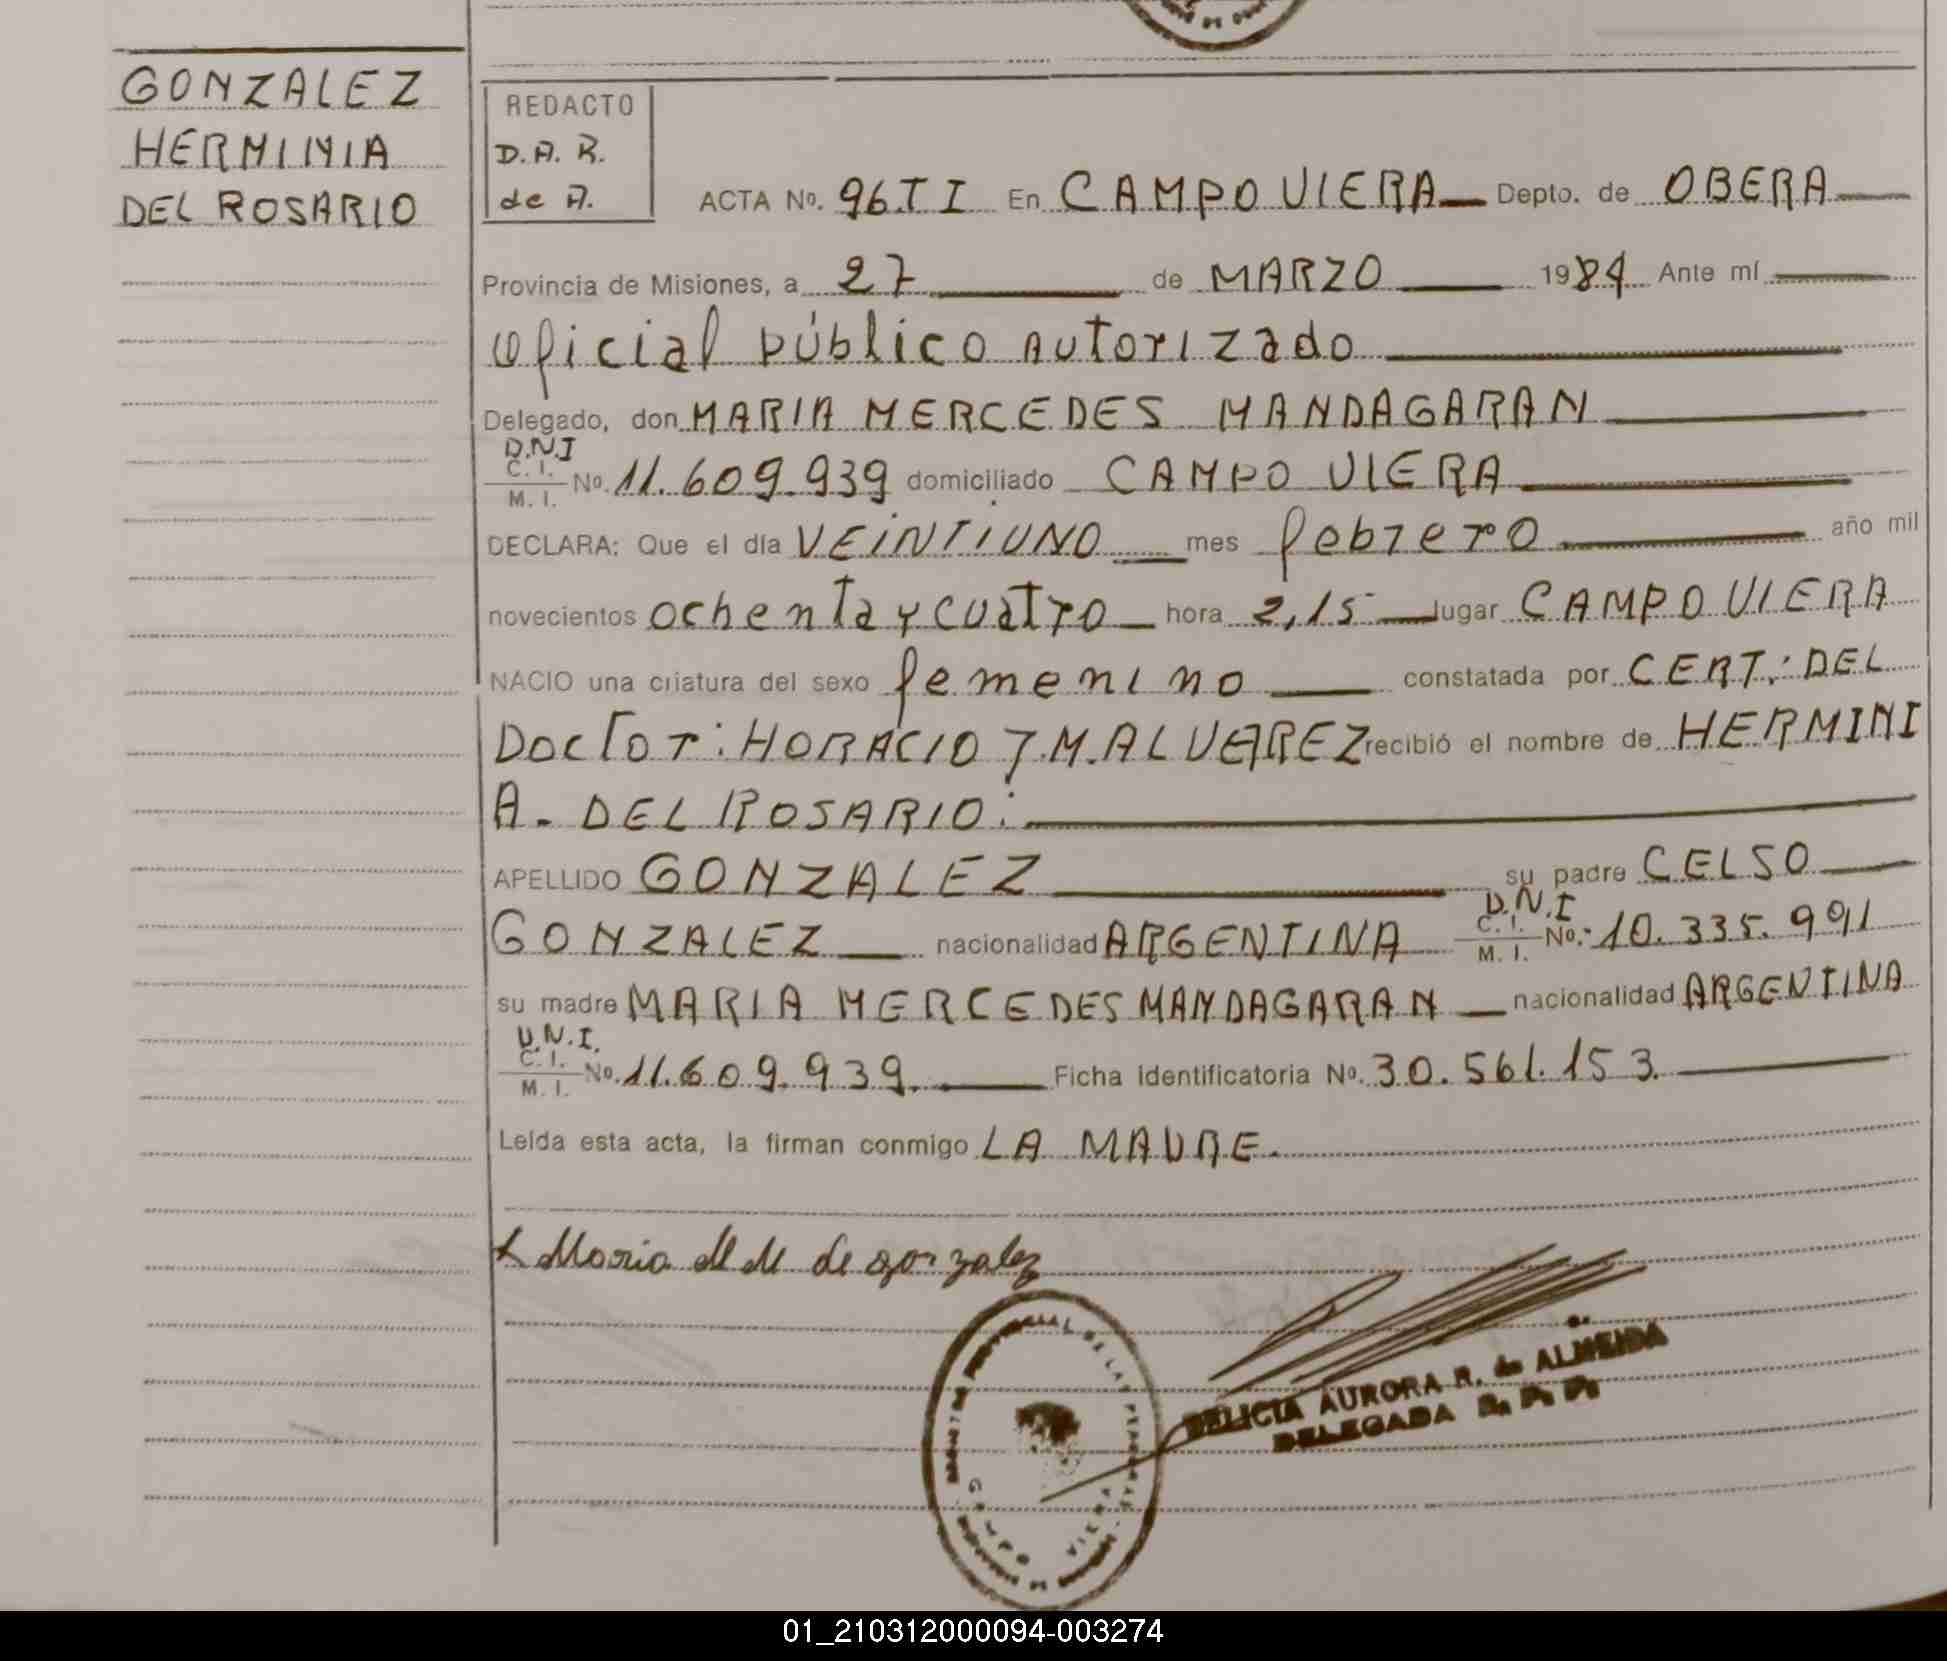 GONZALEZ
HERMINIA
DEL ROSARIO
REDACTO
D.A.R.
de A.
ACTA No. 96 T I En CAMPO VIERA Depto. de OBERA
Provincia de Misiones, a 27 de MARZO 1984 Ante mí
oficial público autorizado
Delegado, don MARIA MERCEDES MANDAGARAN
D.N.I
C. I.
M. I. No. 11.609.939 domiciliado CAMPO VIERA
DECLARA: Que el día VEINTIUNO mes febrero año mil
novecientos ochenta y cuatro hora 2,15 lugar CAMPO VIERA
NACIO una criatura del sexo femenino constatada por CERT.: DEL
Doctor: HORACIO J.M. ALVEREZ recibió el nombre de HERMINI
A. DEL ROSARIO:
APELLIDO GONZALEZ su padre CELSO
GONZALEZ nacionalidad ARGENTINA D.N.I C. I. M. I. No. 10.335.991
su madre MARIA MERCEDES MANDAGARAN nacionalidad ARGENTINA
D.N.I.
C. I.
M. I. No. 11.609.939. Ficha Identificatoria No. 30.561.153.
Leída esta acta, la firman conmigo LA MADRE.
Maria M M de gonzalez
DELICIA AURORA R. de ALMEIDA
DELEGADA
CAMPO VIERA
01_210312000094-003274